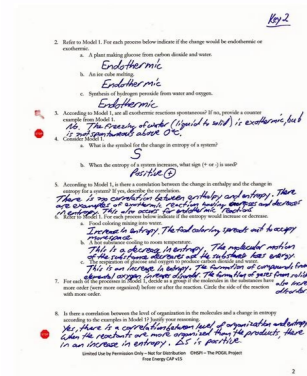 Key 2
2. Refer to Model 1. For each process below indicate if the change would be endothermic or
exothermic.
a. A plant making glucose from carbon dioxide and water.
Endothermic
b. An ice cube melting.
Endothermic
c. Synthesis of hydrogen peroxide from water and oxygen.
Endothermic
3. According to Model 1, are all exothermic reactions spontaneous? If no, provide a counter
example from Model 1.
No. The freezing of water (liquid to solid) is exothermic, but
is not spontaneous above 0°C.
4. Consider Model 1.
a. What is the symbol for the change in entropy of a system?
S
b. When the entropy of a system increases, what sign (+ or -) is used?
Positive (+)
5. According to Model 1, is there a correlation between the change in enthalpy and the change in
entropy for a system? If yes, describe the correlation.
There is no correlation between enthalpy and entropy. There
are examples of exothermic reaction having increases and decreases
in entropy. This also exists for endothermic reactions
6. Refer to Model 1. For each process below indicate if the entropy would increase or decrease.
a. Food coloring mixing into water.
Increase in entropy. The food coloring spreads out to occupy
more space.
b. A hot substance cooling to room temperature.
This is a decrease in entropy. The molecular motion
of the substance decreases and the substance has less energy.
c. The respiration of glucose and oxygen to produce carbon dioxide and water.
This is an increase in entropy. The formation of compounds from
elemental oxygen increase disorder. The formation of gases from solids
also increase
disorder
7. For each of the processes in Model 1, decide as a group if the molecules in the substances have
more order (were more organized) before or after the reaction. Circle the side of the reaction
with more order.
8. Is there a correlation between the level of organization in the molecules and a change in entropy
according to the examples in Model 1? Justify your reasoning.
Yes, there is a correlation between level of organization and entropy
When the reactants are more organized than the products, there
is an increase in entropy. ΔS is positive
Limited Use by Permission Only – Not for Distribution ©HSPI – The POGIL Project
Free Energy CAP v15
2